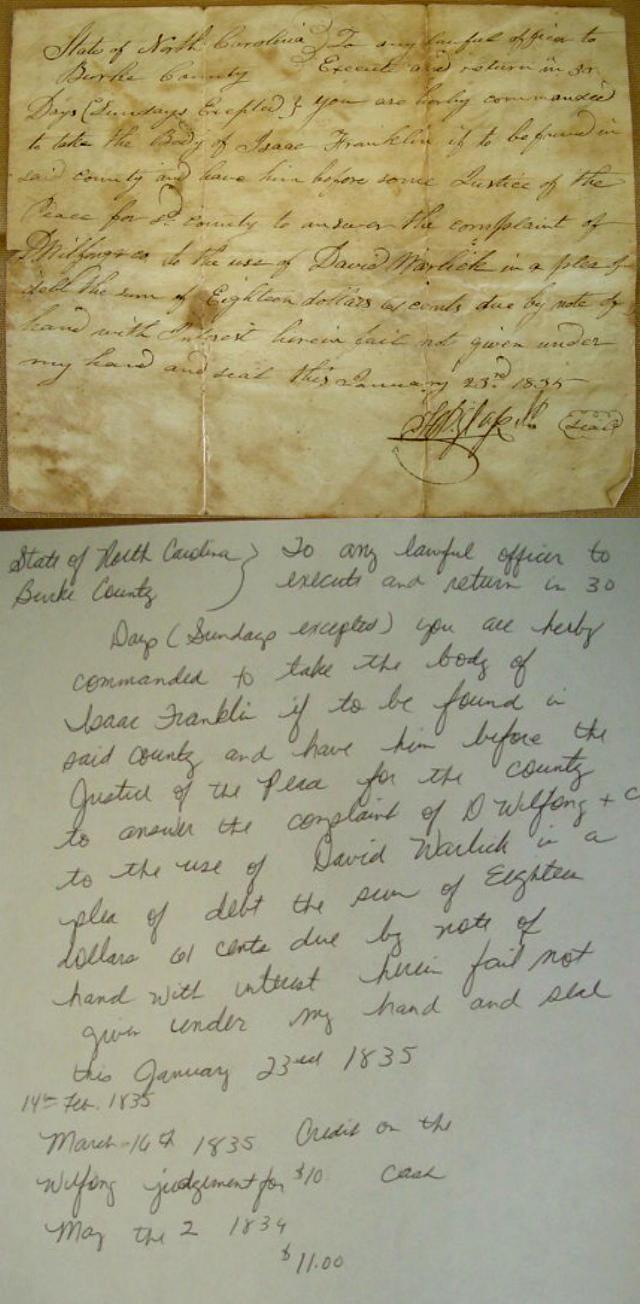 State of North Carolina } To any lawful officer to
Burke County Execute and return in 30
Days (Sundays Excepted) you are herby commanded
to take the Body of Isaac Franklin if to be found in
said county and have him before some Justice of the
Peace for sd. county to answer the complaint of
D Wilfong & co to the use of David Warlick in a plea of
debt the sum of Eighteen dollars 61 cents due by note of
hand with Interest herein fail not given under
my hand and seal this January 23rd 1835
(Seal)
State of North Carolina } To any lawful officer to
Burke County execute and return in 30
Days (Sundays excepted) you are herby
commanded to take the body of
Isaac Franklin if to be found in
said county and have him before the
Justice of the Peace for the county
to answer the complaint of D Wilfong + C
to the use of David Warlick in a
plea of debt the sum of Eighteen
dollars 61 cents due by note of
hand with interest herein fail not
given under my hand and seal
this January 23rd 1835
14th Feb. 1835
March 16th 1835 Credit on the
Wilfong judgement for $10 cash
May the 2 1834
$11.00